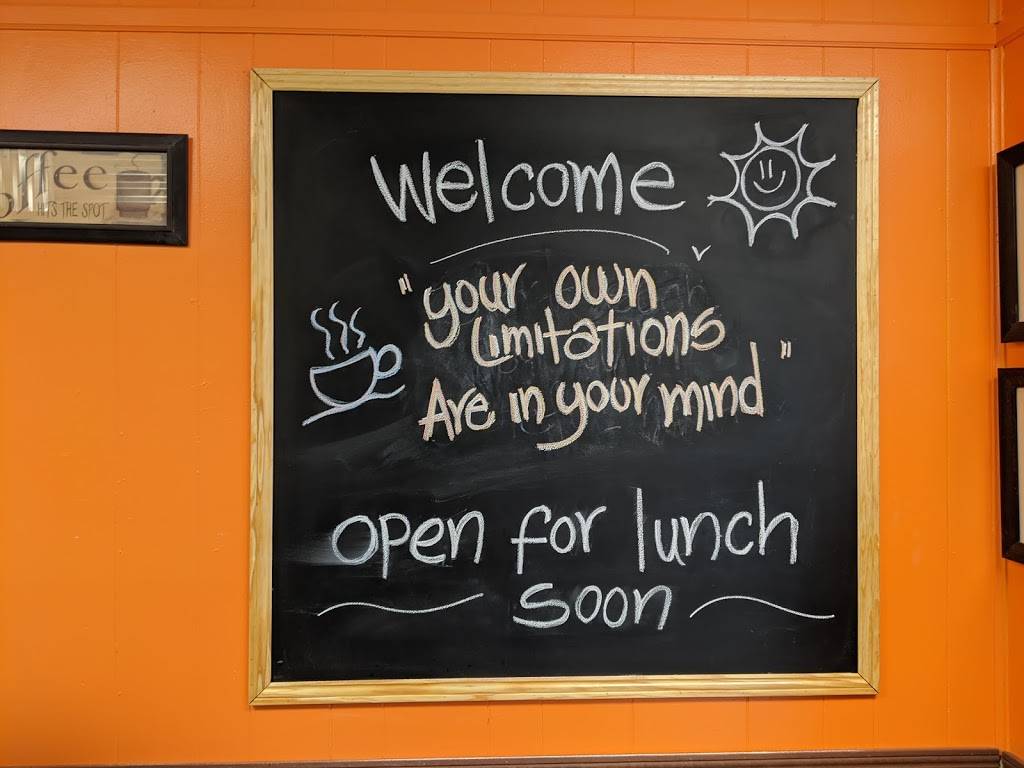 Welcome
"your own
Limitations
Are in your mind"
open for lunch
soon
ffee
HITS THE SPOT